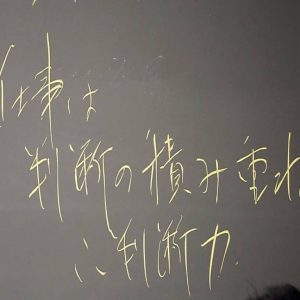 仕事は
判断の積み重ね
∴判断力